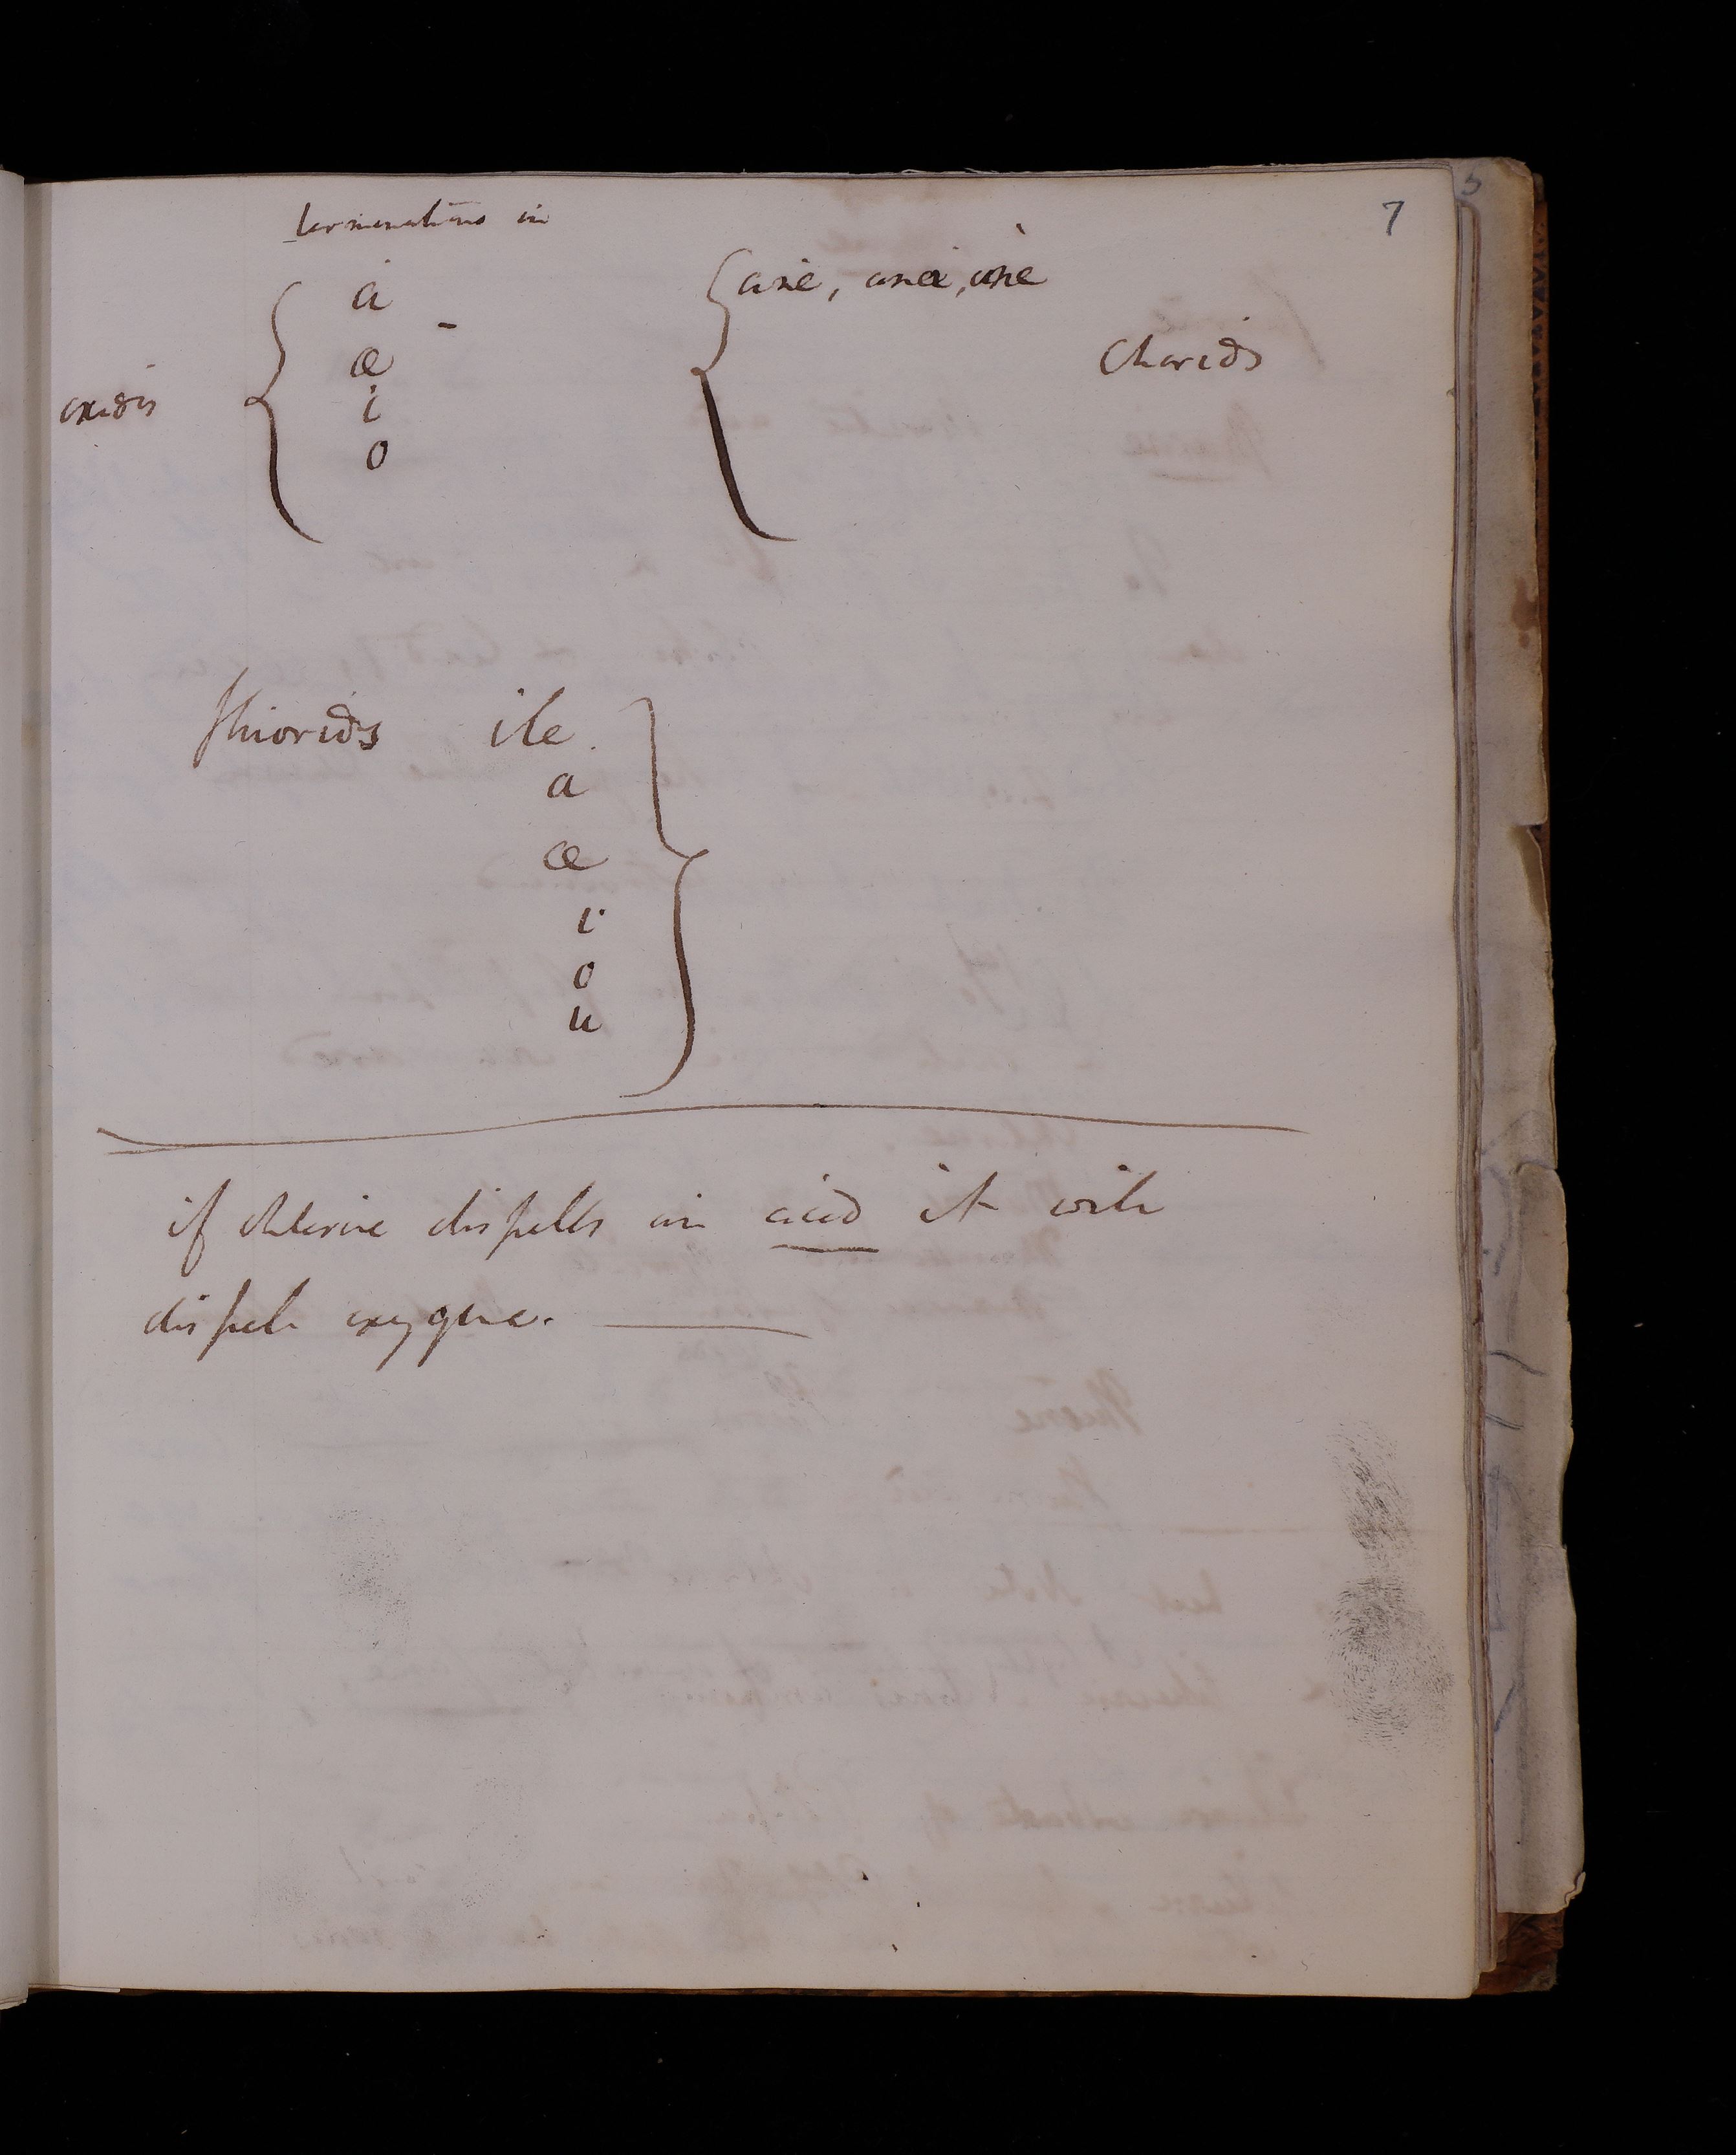 7
terminations in
oxides { a - { ane, anea, ane
æ Chorids
i
o
fluorids ile
a
æ
i
o
u
if chlorine dispells an acid it will
dispell oxygene.